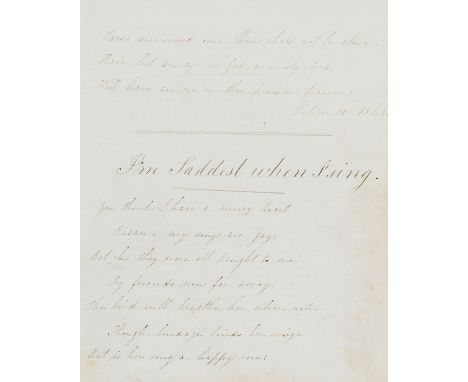 Press onward and Thou shalt not be alone.
Have but an eye on God, as surely God
Will have an eye on thee
October 21st
I'm Saddest when I sing.
You think I have a merry heart
Because my songs are gay,
But oh! they were all taught to me
By friends now far away;
The bird will breathe her silver note
Though bondage binds her wing
But is her song a happy one